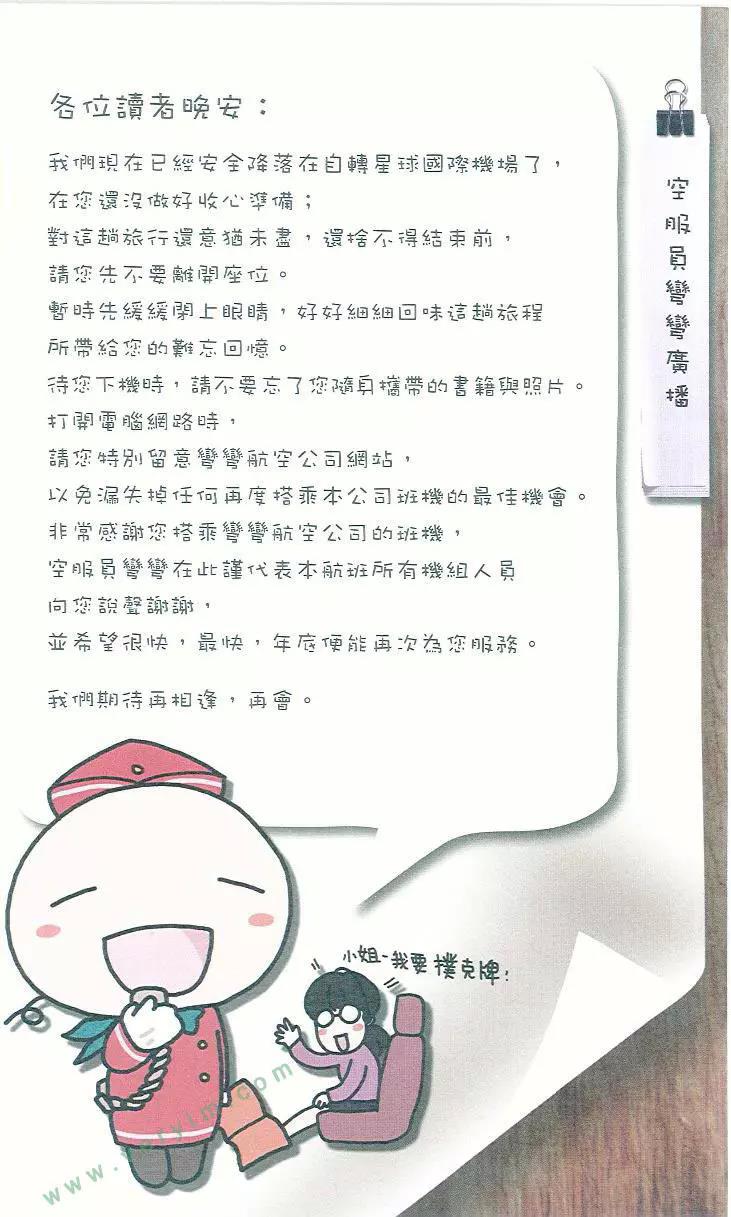 各位讀者晚安：
我們現在已經安全降落在自轉星球國際機場了，
在您還沒做好收心準備；
對這趟旅行還意猶未盡，還捨不得結束前，
請您先不要離開座位。
暫時先緩緩閉上眼睛，好好細細回味這趟旅程
所帶給您的難忘回憶。
待您下機時，請不要忘了您隨身攜帶的書籍與照片。
打開電腦網路時，
請您特別留意彎彎航空公司網站，
以免漏失掉任何再度搭乘本公司班機的最佳機會。
非常感謝您搭乘彎彎航空公司的班機，
空服員彎彎在此謹代表本航班所有機組人員
向您說聲謝謝，
並希望很快，最快，年底便能再次為您服務。
我們期待再相逢，再會。
空服員彎彎廣播
小姐~我要撲克牌！